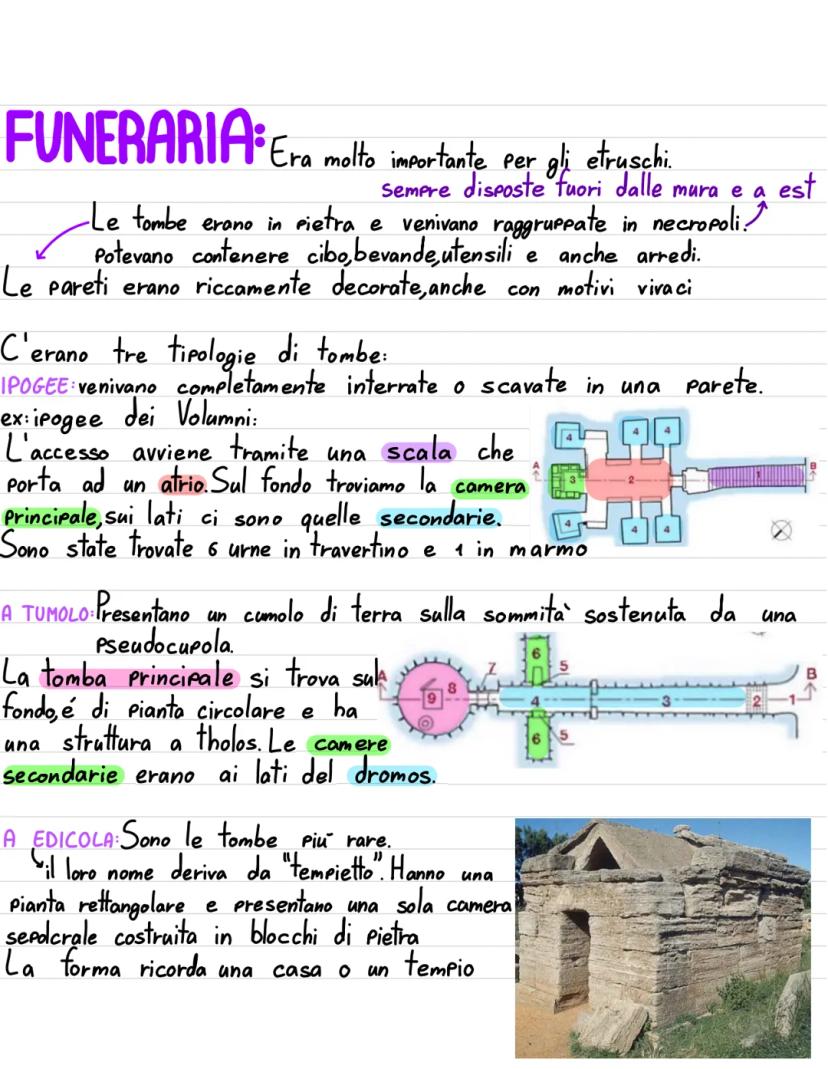 FUNERARIA: Era molto importante per gli etruschi.
sempre disposte fuori dalle mura e a est
Le tombe erano in pietra e venivano raggruppate in necropoli.
Potevano contenere cibo, bevande, utensili e anche arredi.
Le pareti erano riccamente decorate, anche con motivi vivaci
C'erano tre tipologie di tombe:
IPOGEE: venivano completamente interrate o scavate in una parete.
ex: ipogee dei Volumni:
L'accesso avviene tramite una scala che
porta ad un atrio. Sul fondo troviamo la camera
principale, sui lati ci sono quelle secondarie.
Sono state trovate 6 urne in travertino e 1 in marmo
4 4 4
A 3 2 1 B
4 4 4
A TUMOLO: Presentano un cumolo di terra sulla sommità sostenuta da una
pseudocupola.
La tomba principale si trova sul
fondo, é di pianta circolare e ha
una struttura a tholos. Le camere
secondarie erano ai lati del dromos.
6 5
A 9 8 7 4 3 2 1 B
6 5
A EDICOLA: Sono le tombe più rare.
il loro nome deriva da "tempietto". Hanno una
pianta rettangolare e presentano una sola camera
sepolcrale costruita in blocchi di pietra
La forma ricorda una casa o un tempio